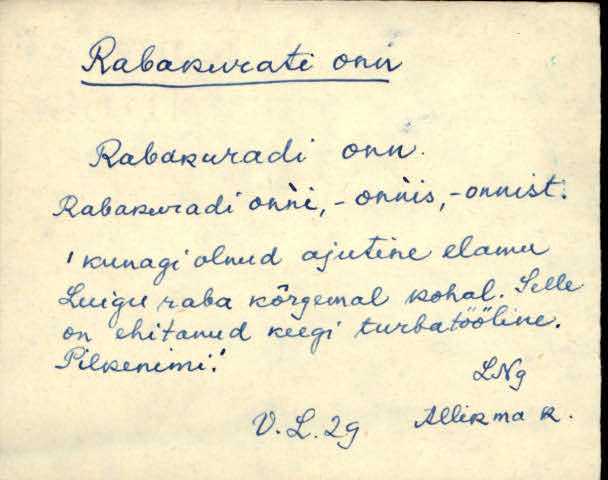 Rabakurati onn
Rabakuradi onn.
Rabakuradi onǹi, - onǹis, - onnist.
' kunagi olnud ajutine elamu
Luigu raba kõrgemal kohal. Selle
on ehitanud keegi turbatööline.
Pilkenimi.'
LNg
V. L. 29 Allikma k.